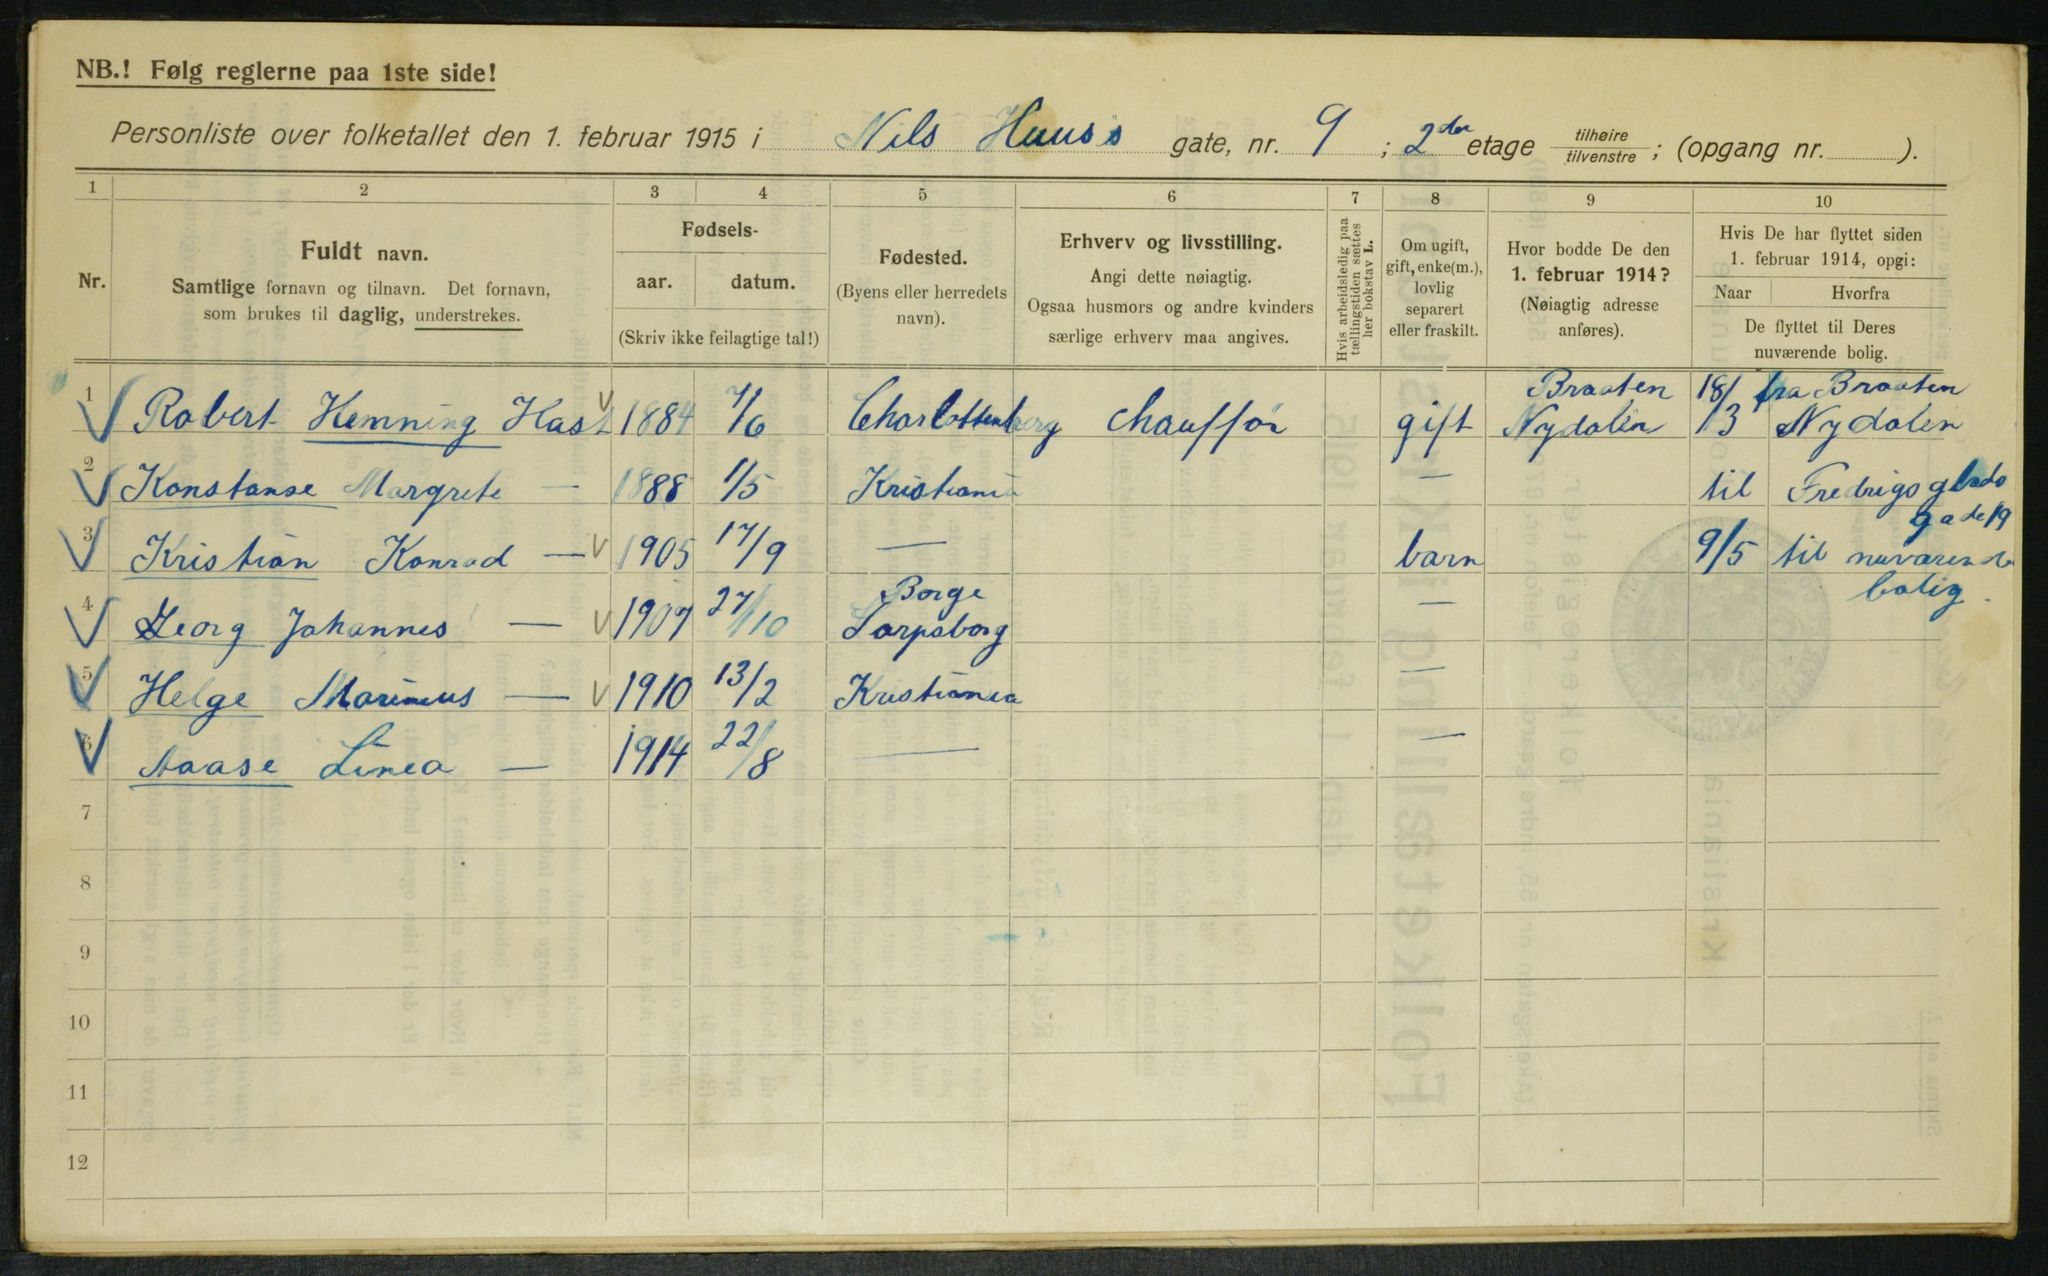 NB.! Følg reglerne paa 1ste side!
Personliste over folketallet den 1. februar 1915 i Nils Huus's gate, nr. 9 ; 2den etage tilhøire / tilvenstre ; (opgang nr. ).
1 2 3 4 5 6 7 8 9 10
Nr.
Fuldt navn.
Samtlige fornavn og tilnavn. Det fornavn,
som brukes til daglig, understrekes.
Fødsels-
aar. datum.
(Skriv ikke feilagtige tal!)
Fødested.
(Byens eller herredets
navn).
Erhverv og livsstilling.
Angi dette nøiagtig.
Ogsaa husmors og andre kvinders
særlige erhverv maa angives.
Hvis arbeidsledig paa
tællingstiden sættes
her bokstav L.
Om ugift,
gift, enke(m.),
lovlig
separert
eller fraskilt.
Hvor bodde De den
1. februar 1914?
(Nøiagtig adresse
anføres).
Hvis De har flyttet siden
1. februar 1914, opgi:
Naar Hvorfra
De flyttet til Deres
nuværende bolig.
1 Robert Hemning Hast 1884 7/6 Charlottenberg Chauffør gift Braaten Nydalen 18/3 fra Braaten Nydalen
2 Konstanse Margrete — 1888 1/5 Kristiania — til Fredrigs glads gade 19
3 Kristian Konrad — 1905 17/9 — barn 9/5 til nuværende bolig.
4 Georg Johannes — 1907 27/10 Borge Sarpsborg —
5 Helge Marinius — 1910 13/2 Kristiania —
6 Aaase Linea — 1914 22/8 — —
7
8
9
10
11
12